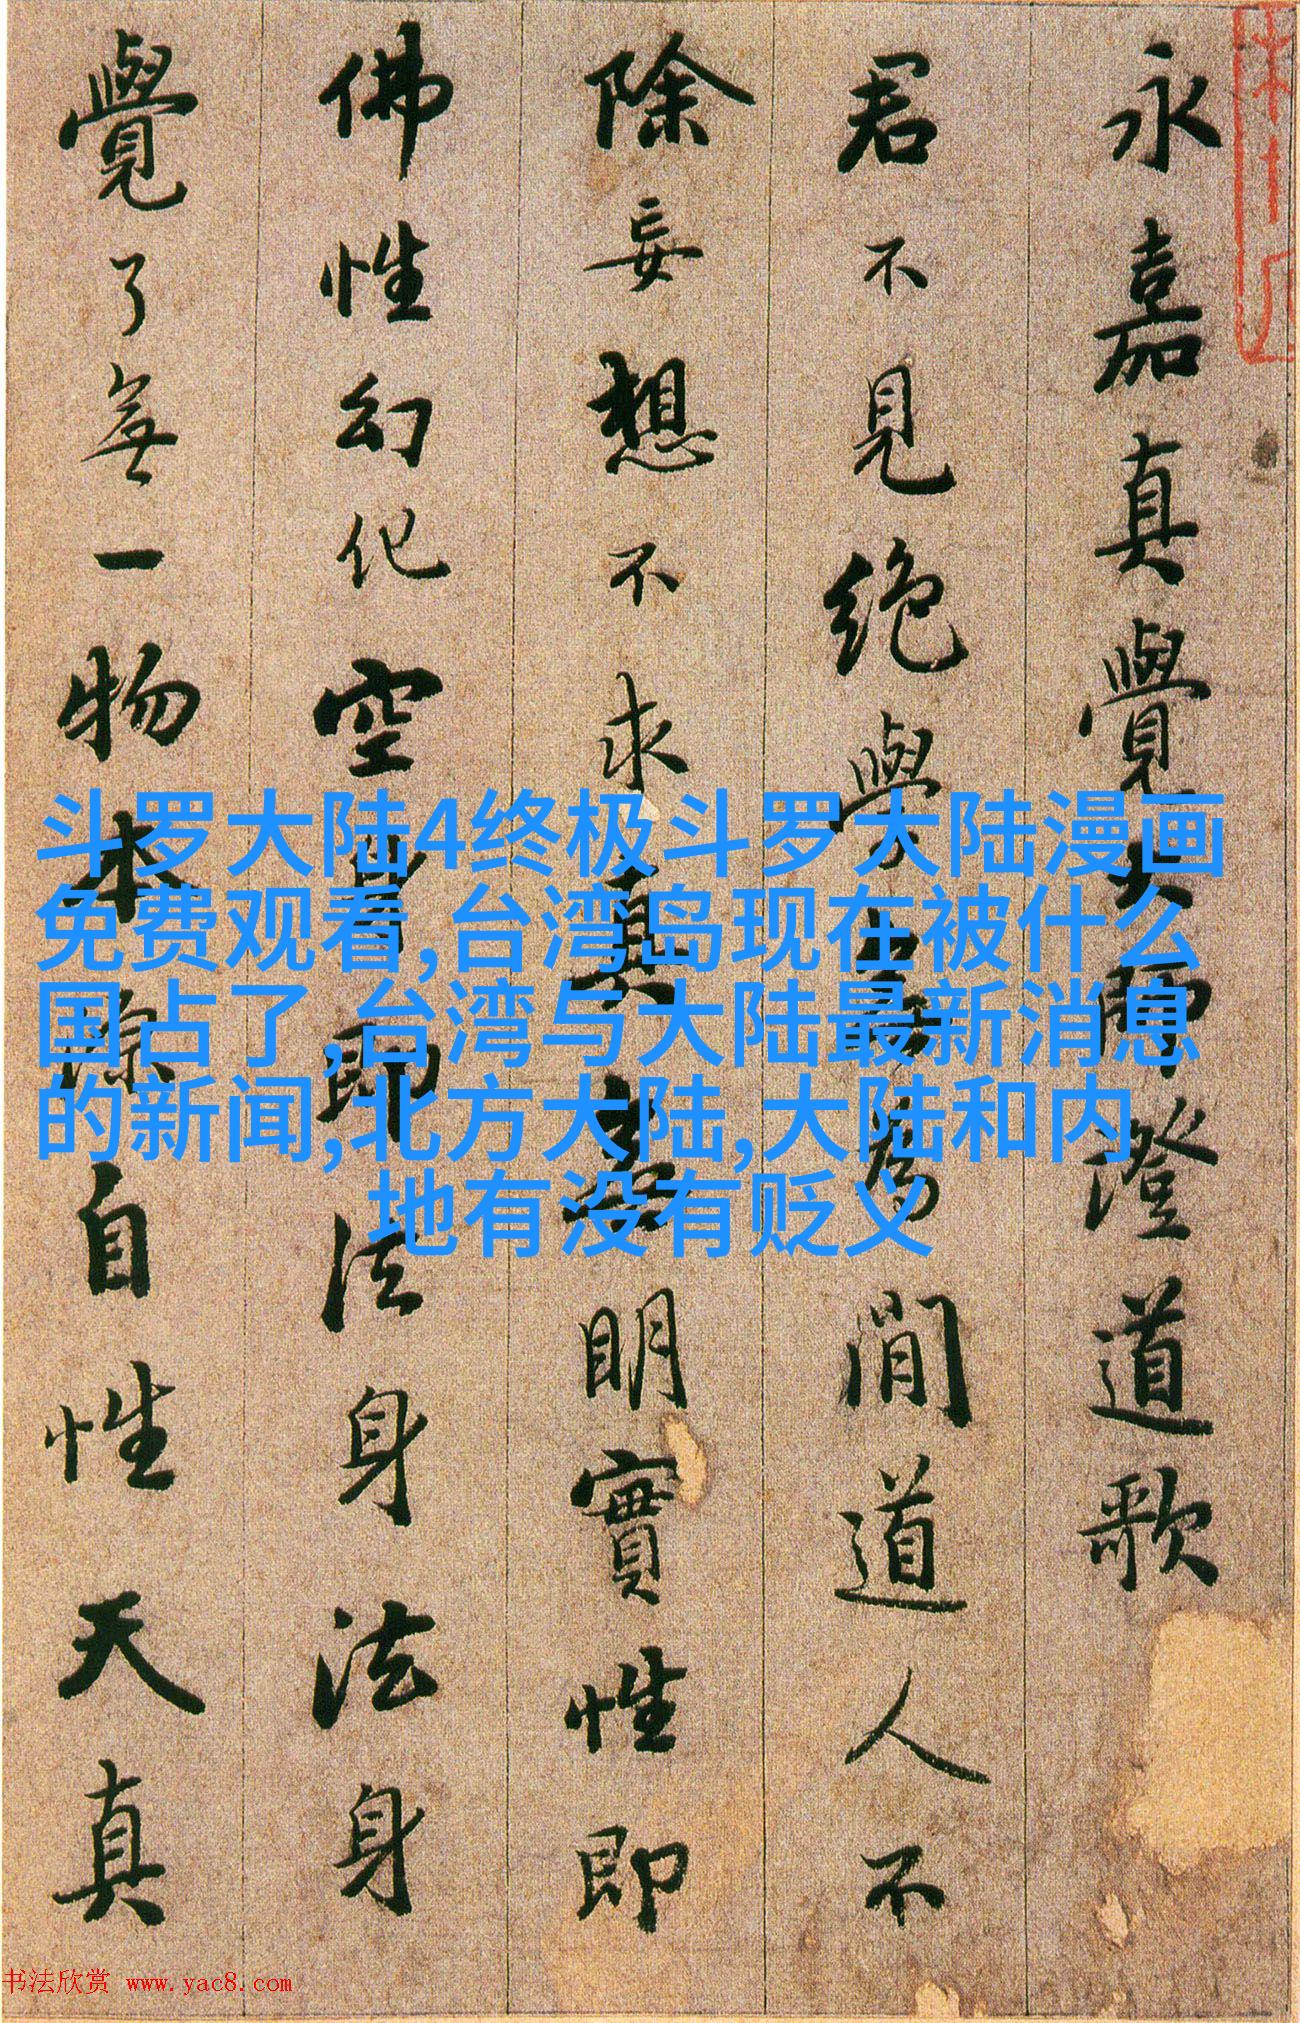 永嘉真覺大師澄道歌
君不見絕學無為閒道人不
除妄想不求真無明實性即
佛性幻化空身即法身法身
覺了無一物本源自性天真
斗罗大陆4终极斗罗大陆漫画
免费观看,台湾岛现在被什么
国占了,台湾与大陆最新消息
的新闻,北方大陆,大陆和内
地有没有贬义
书法欣赏 www.yac8.com